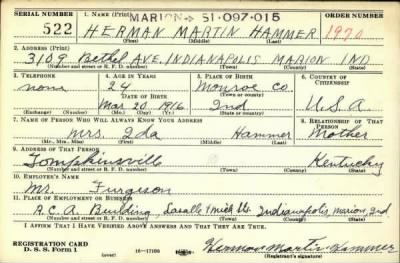 MARION - 51-097-015
SERIAL NUMBER 1. NAME (Print) ORDER NUMBER
522 HERMAN MARTIN HAMMER 1970
(First) (Middle) (Last)
2. ADDRESS (Print)
3109 Bethel AVE. INDIANAPOLIS MARION IND
(Number and street or R. F. D. number) (Town) (County) (State)
3. TELEPHONE 4. AGE IN YEARS 5. PLACE OF BIRTH 6. COUNTRY OF CITIZENSHIP
none 24 Monroe Co.
DATE OF BIRTH (Town or county)
Mar 20 1916 Ind U.S.A.
(Exchange) (Number) (Mo.) (Day) (Yr.) (State or country)
7. NAME OF PERSON WHO WILL ALWAYS KNOW YOUR ADDRESS 8. RELATIONSHIP OF THAT PERSON
Mrs. Ida Hammer Mother
(Mr., Mrs., Miss) (First) (Middle) (Last)
9. ADDRESS OF THAT PERSON
Tompkinsville Kentucky
(Number and street or R. F. D. number) (Town) (County) (State)
10. EMPLOYER'S NAME
Mr. Furgison
11. PLACE OF EMPLOYMENT OR BUSINESS
R.C.A. Building, Lasalle & Mich Sts. Indianapolis, Marion, Ind
(Number and street or R. F. D. number) (Town) (County) (State)
I AFFIRM THAT I HAVE VERIFIED ABOVE ANSWERS AND THAT THEY ARE TRUE.
REGISTRATION CARD
D. S. S. Form 1 16—17105 Herman Martin Hammer
(Registrant's signature)